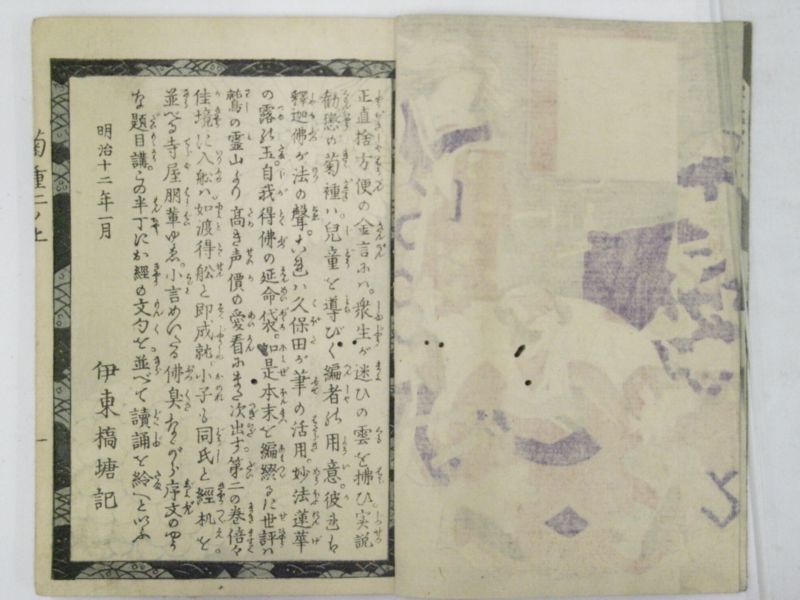 正直捨方便の金言にハ。衆生が迷ひの雲を拂ひ。実説
勧懲の菊種ハ。兒童を導びく編者の用意。彼
釋迦佛が法の聲。ハ久保田が筆の活用。妙法蓮華
の露の玉。自我得佛の延命袋。如是本末を編綴るに世評ハ
鷲の霊山より高き声價の愛看にまた次出す第二の巻倍々
佳境に入船ハ如渡得舩と即成就。小子も同氏と經机を
並べる寺屋朋輩ゆゑ。小言めいたる佛臭ながら序文のやう
な題目講らの半丁にお經の文句を並べて讀誦を給へといふ
明治十二年一月
伊東橋塘記
菊種二ノ上
一